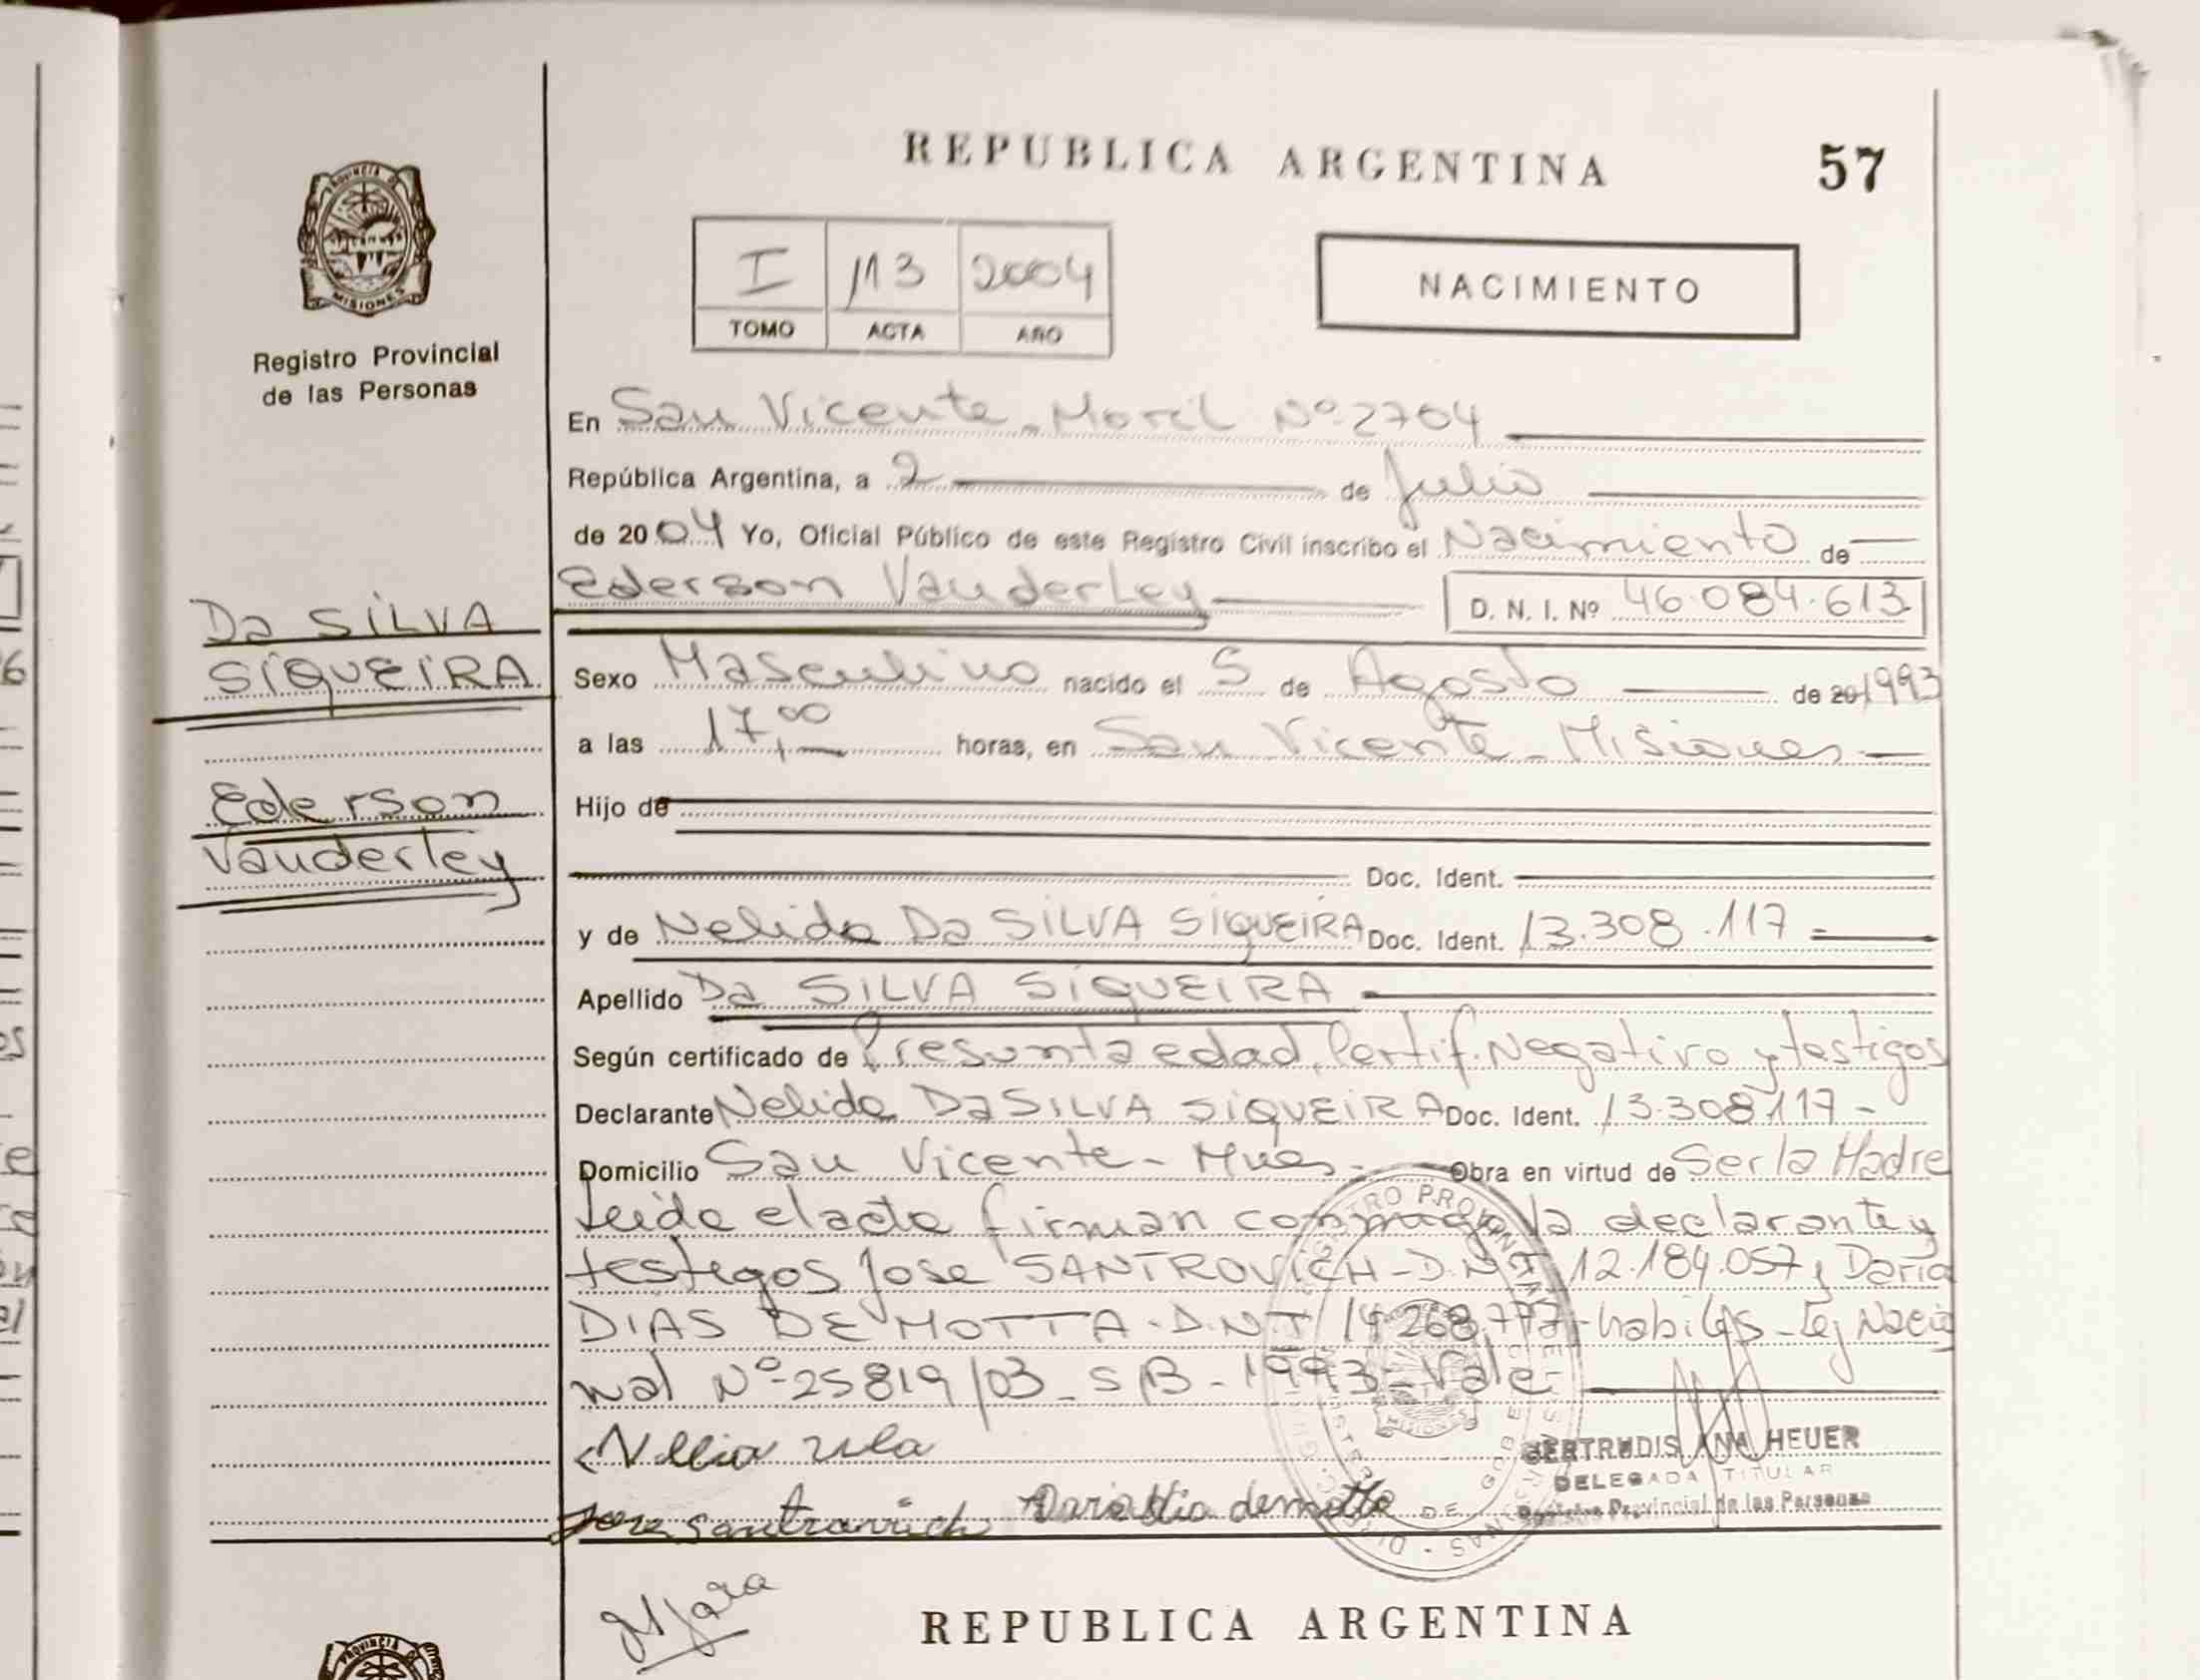 REPUBLICA ARGENTINA
57
PROVINCIA DE
MISIONES
Registro Provincial
de las Personas
I 113 2004
TOMO ACTA AÑO
NACIMIENTO
En San Vicente - Movil Nº 2704
República Argentina, a 2 de Julio
de 2004 Yo, Oficial Público de este Registro Civil inscribo el Nacimiento de
Ederson Vanderley D. N. I. Nº 46.084.613
Da SILVA
SIQUEIRA
Sexo Masculino nacido el 5 de Agosto de 20 1993
a las 17,00 horas, en San Vicente - Misiones
Ederson
Vanderley
Hijo de
Doc. Ident.
y de Nelida Da SILVA SIQUEIRA Doc. Ident. 13.308.117
Apellido Da SILVA SIQUEIRA
Según certificado de Presunta edad, Certif. Negativo y testigos
Declarante Nelida Da SILVA SIQUEIRA Doc. Ident. 13.308.117 -
Domicilio San Vicente - Mnes - Obra en virtud de Ser la Madre
Leida el acta firman conmigo la declarante y
testigos Jose SANTROVICH - D.N.I 12.184.057 y Daria
DIAS DE MOTTA - D.N.I 14.268.777 - habiles - Ley Nacio
nal Nº 25819/03 - S/B - 1993 - Vale -
GERTRUDIS ANA HEUER
DELEGADA TITULAR
Registro Provincial de las Personas
Jose Santrovich Daria Dia demotta
REPUBLICA ARGENTINA
PROVINCIA DE